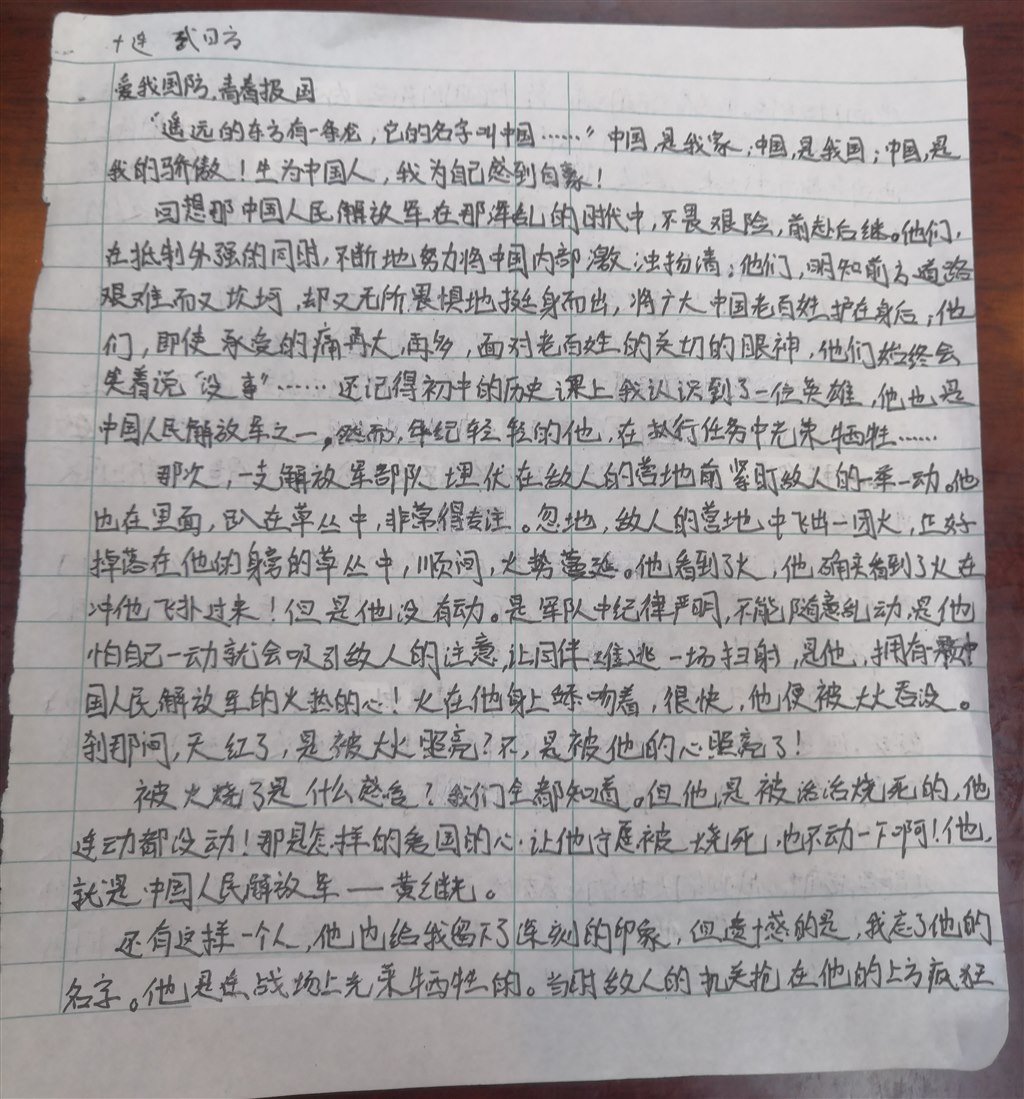 十连 武日方
爱我国防,青春报国
"遥远的东方有一条龙,它的名字叫中国……"中国,是我家;中国,是我国;中国,是
我的骄傲!生为中国人,我为自己感到自豪!
回想那中国人民解放军在那浑乱的时代中,不畏艰险,前赴后继。他们,
在抵制外强的同时,不断地努力将中国内部激浊扬清;他们,明知前方道路
艰难而又坎坷,却又无所畏惧地挺身而出,将广大中国老百姓护在身后;他
们,即使承受的痛再大,再多,面对老百姓的关切的眼神,他们始终会
笑着说"没事"……还记得初中的历史课上我认识到了一位英雄,他也是
中国人民解放军之一。然而,年纪轻轻的他,在执行任务中光荣牺牲……
那次,一支解放军部队埋伏在敌人的营地前紧盯敌人的一举一动。他
也在里面,趴在草丛中,非常得专注。忽地,敌人的营地中飞出一团火,正好
掉落在他的身旁的草丛中,顺间,火势蔓延。他看到了火,他确实看到了火在
冲他飞扑过来!但是他没有动。是军队中纪律严明,不能随意乱动,是他
怕自己一动就会吸引敌人的注意,让同伴难逃一场扫射,是他,拥有颗中
国人民解放军的火热的心!火在他身上吻着,很快,他便被大火吞没。
刹那间,天红了,是被大火照亮?不,是被他的心照亮了!
被火烧了是什么感觉?我们全都知道。但他是被活活烧死的,他
连动都没动!那是怎样的爱国的心,让他宁愿被烧死,也不动一下啊!他,
就是中国人民解放军——黄继光。
还有这样一个人,他也给我留下了深刻的印象,但遗憾的是,我忘了他的
名字。他是在战场上光荣牺牲的。当时敌人的机关抢在他的上方疯狂